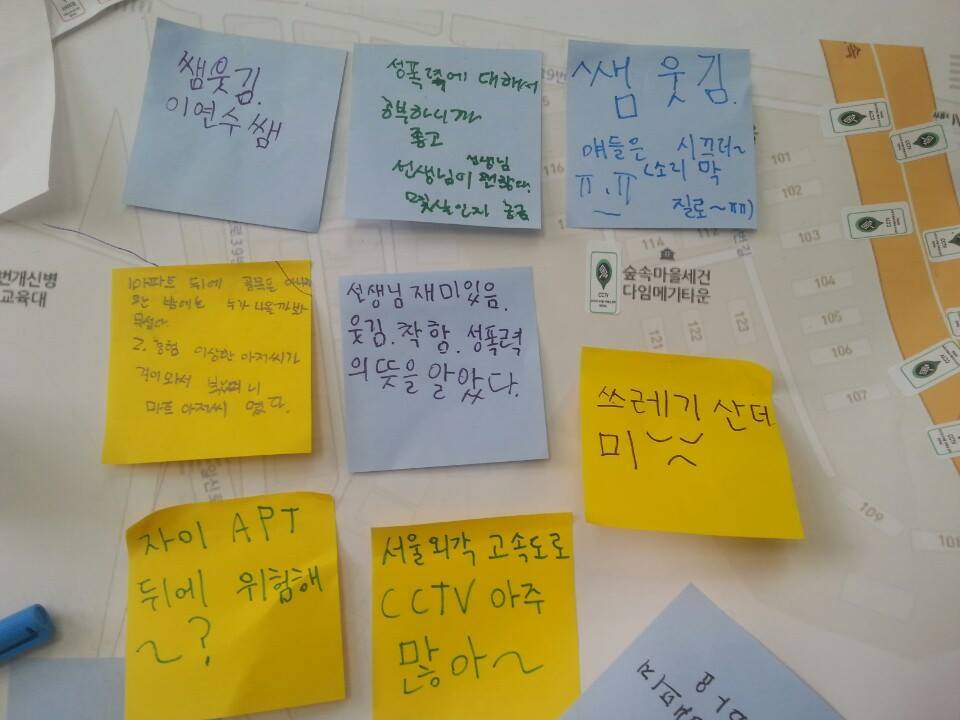 쌤웃김.
이연수 쌤
성폭력에 대해서
공부하니까
좋고
선생님
선생님이
몇살인지 궁금
쌤 웃김.
얘들은 시끄러~
ㅠ.ㅠ (소리 막
질로~ㅠㅠ)
1아파트 뒤에 골목은
밤에는 누가 나올까봐
무섭다.
2. 경험 이상한 아저씨가
마트 아저씨 였다.
선생님 재미있음.
웃김. 착함. 성폭력
의 뜻을 알았다.
쓰레기 산더
미
자이 APT
뒤에 위험해
~?
서울외각 고속도로
CCTV 아주
많아~
번개신병
교육대
숲속마을세건
다임메기타운
CCTV
101
102
103
104
105
106
107
108
109
114
116
121
122
123